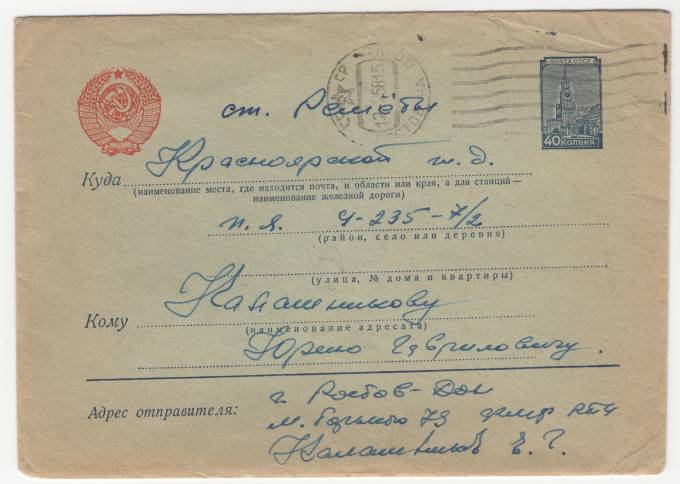 ПОЧТА СССР
40 КОПЕЕК
ст. Решоты
Красноярской ж.д.
Куда
(наименование места, где находится почта, и области или края, а для станций—
наименование железной дороги)
п. я. У-235-7/2
(район, село или деревня)
(улица, № дома и квартиры)
Калашникову
Кому
(наименование адресата)
Юрию Гавриловичу.
г Ростов-Дон
Адрес отправителя:
М. Горького 79
Калашников Е. Г.